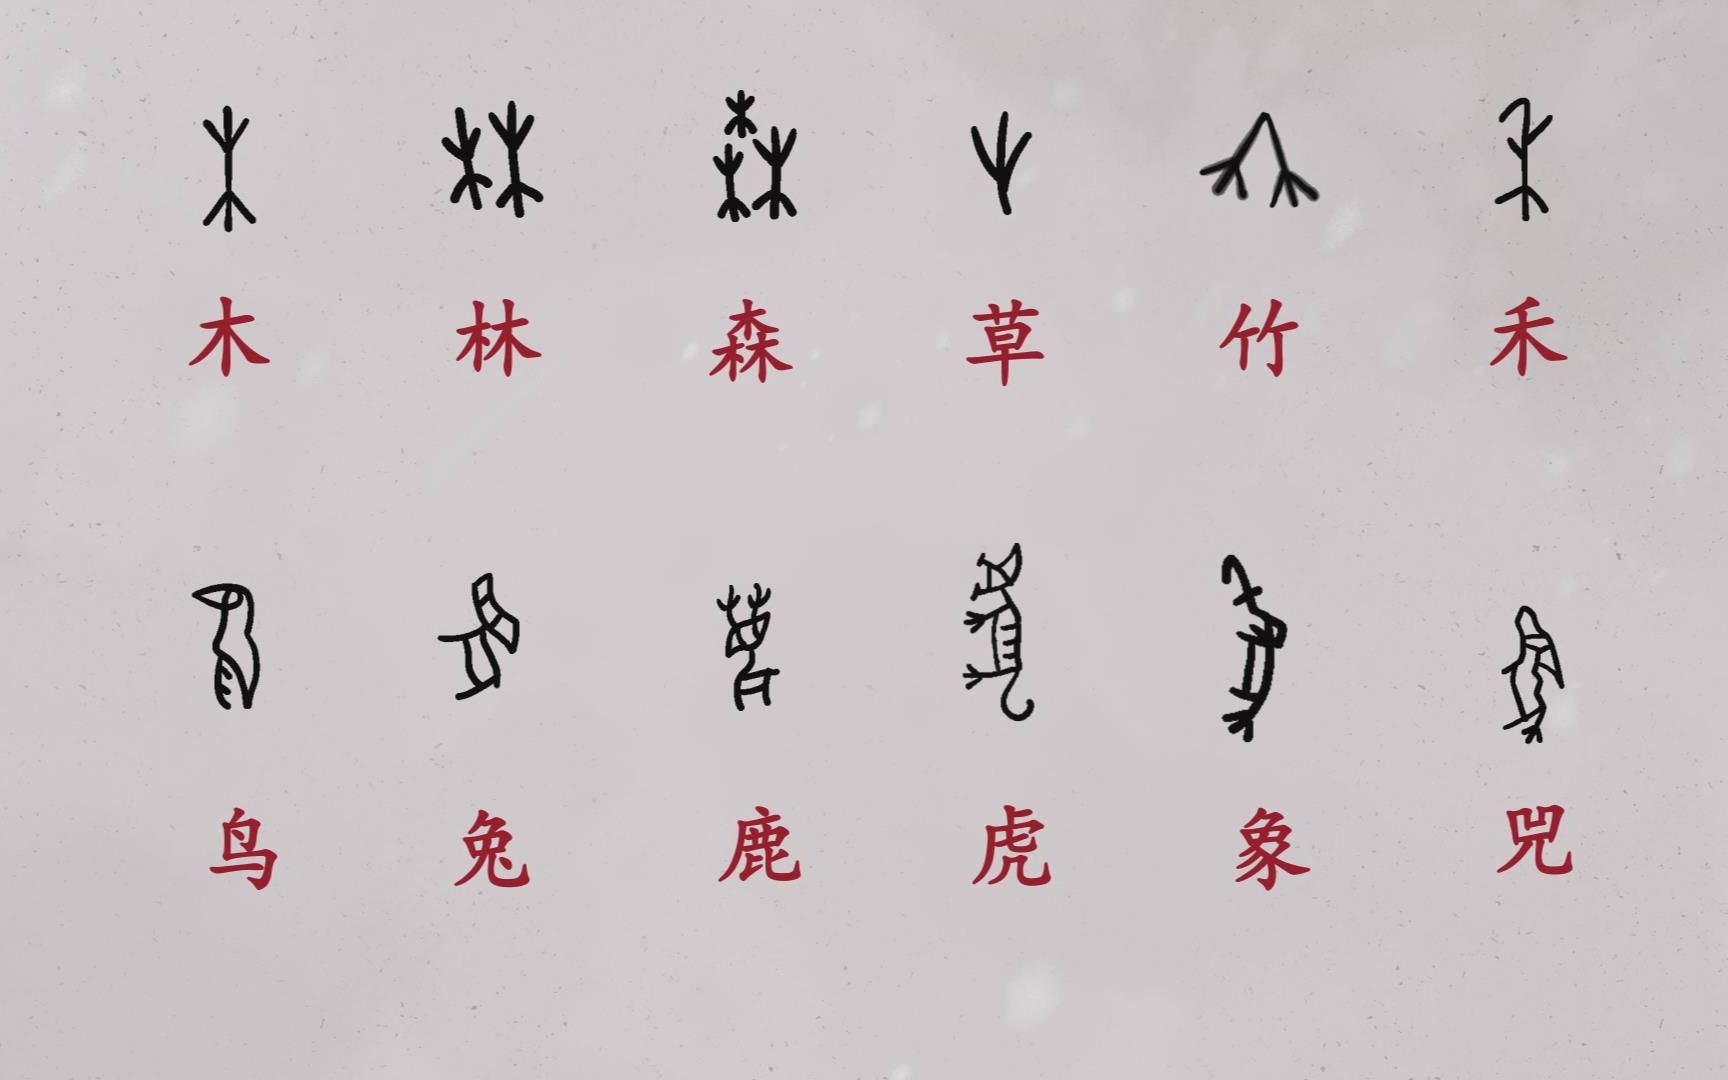 木 林 森 草 竹 禾
鸟 兔 鹿 虎 象 兕